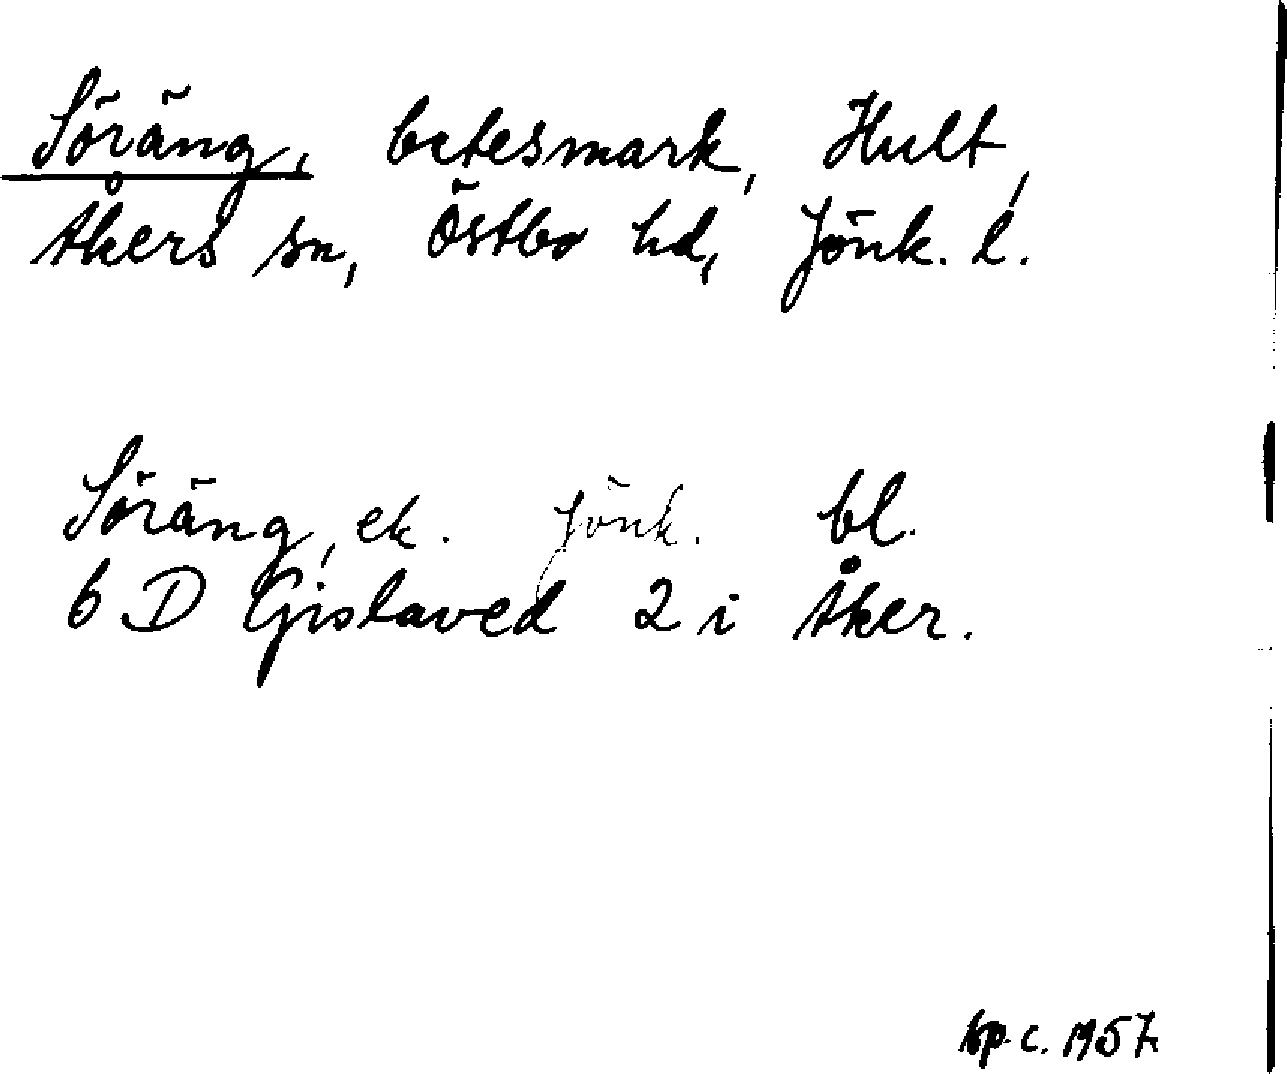 Söräng, betesmark, Hult,
Åkers sn, Östbo hd, Jönk. l.
Söräng, ek. Jönk. bl.
6 D Gislaved 2 i Åker.
c. 1957